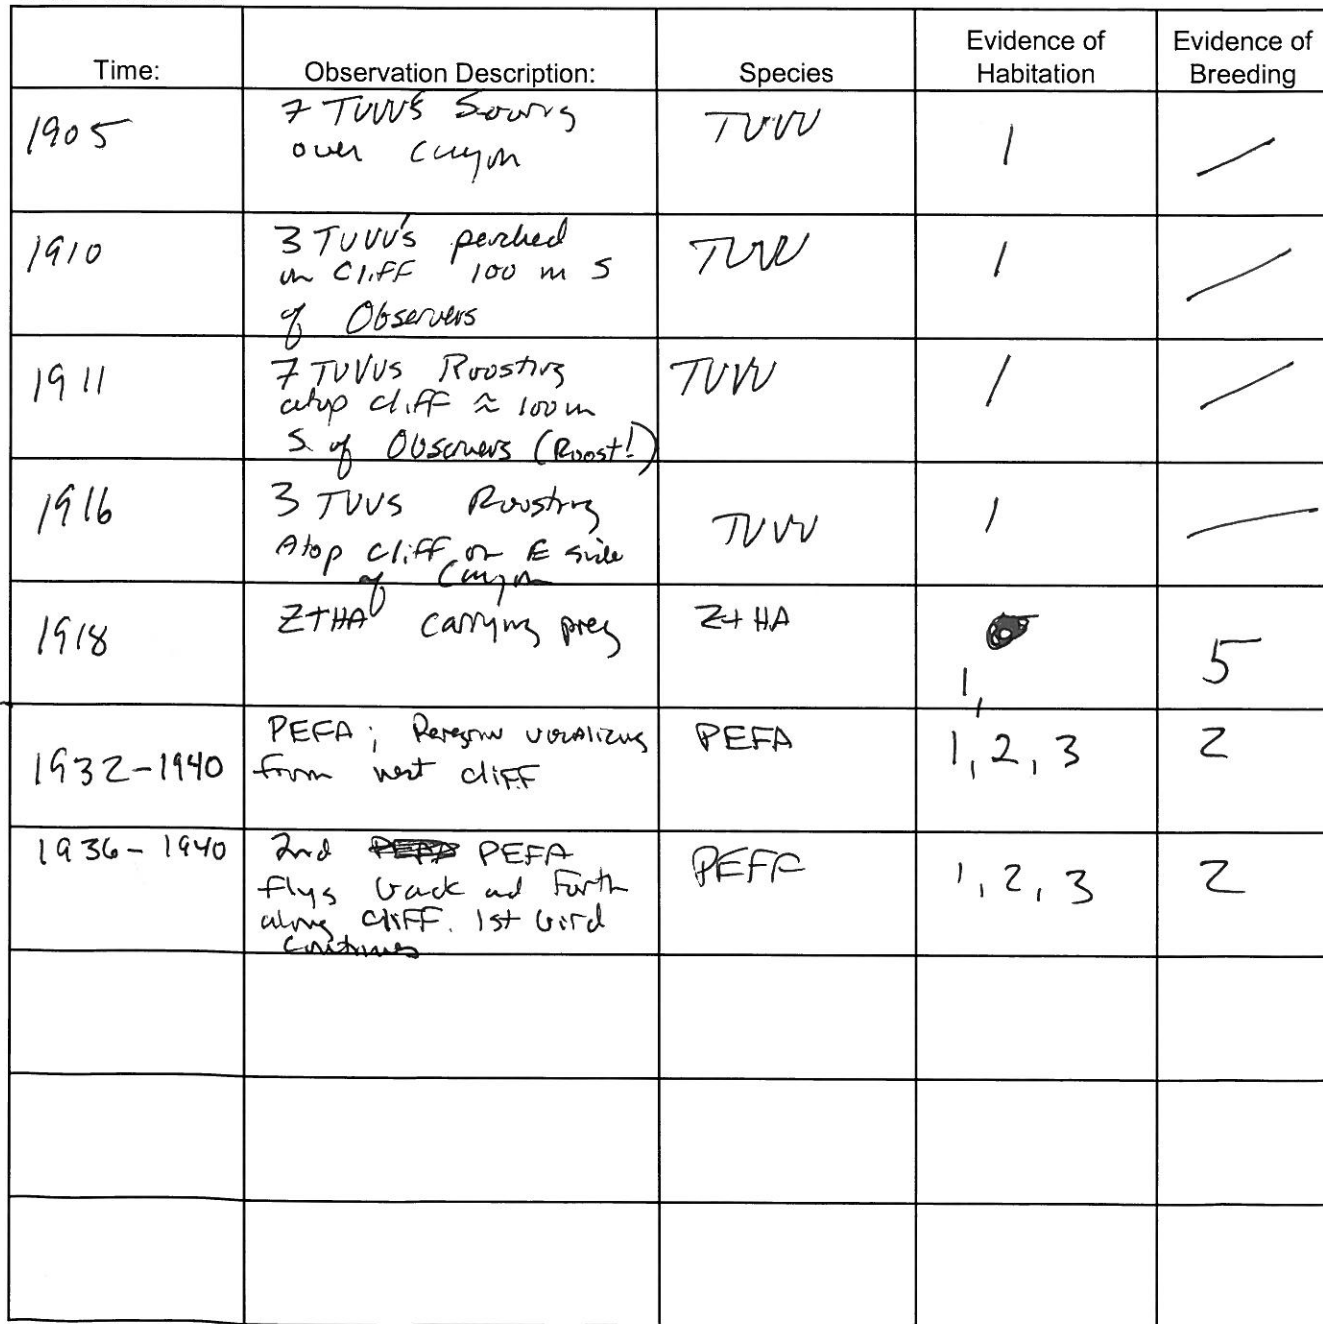 Time: Observation Description: Species Evidence of Habitation Evidence of Breeding
1905 7 TUVU'S Soaring TUVU 1 /
over Canyon
1910 3 TUVU'S perched TUVU 1 /
on Cliff 100 m S
of Observers
1911 7 TUVUs Roosting TUVU 1 /
atop cliff ≈ 100 m
S. of Observers (Roost!)
1916 3 TUVUS Roosting TUVU 1 /
Atop cliff on E side
of Canyon
1918 ZTHA carrying prey Z+HA 1, 5
1932-1940 PEFA; Peregrine vocalizing PEFA 1, 2, 3 2
from west cliff
1936-1940 2nd PEFA PEFA 1, 2, 3 2
flys back and forth
along cliff. 1st bird
continues